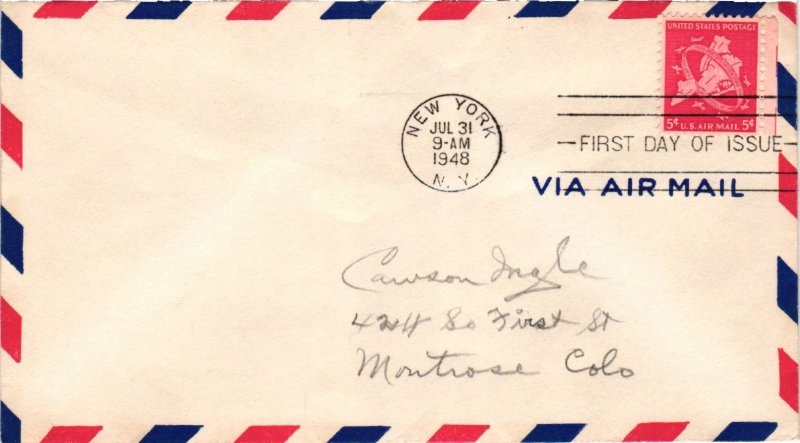 UNITED STATES POSTAGE
5¢ U.S. AIR MAIL 5¢
NEW YORK
JUL 31
9-AM
1948
N. Y.
FIRST DAY OF ISSUE
VIA AIR MAIL
Cawson Ingle
So First St
Montrose Colo